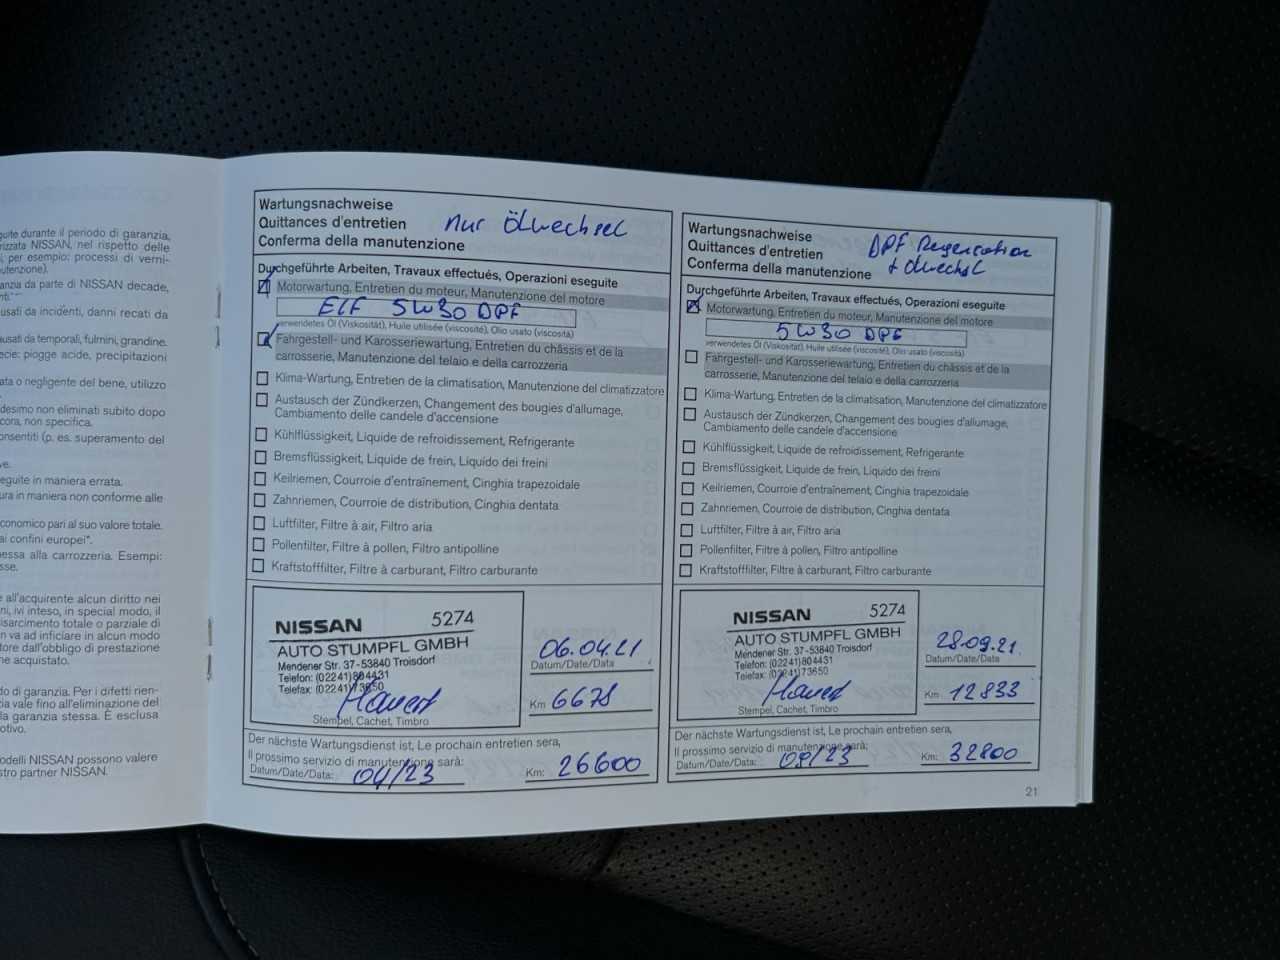 guite durante il periodo di garanzia,
rizzata NISSAN, nel rispetto delle
, per esempio: processi di verni-
utenzione).
anzia da parte di NISSAN decade,
nti."
usati da incidenti, danni recati da
usati da temporali, fulmini, grandine.
ecie: piogge acide, precipitazioni
ata o negligente del bene, utilizzo
desimo non eliminati subito dopo
cora, non specifica.
onsentiti (p. es. superamento del
ve.
eguite in maniera errata.
ura in maniera non conforme alle
conomico pari al suo valore totale.
ai confini europei*.
essa alla carrozzeria. Esempi:
sse.
e all'acquirente alcun diritto nei
ni, ivi inteso, in special modo, il
isarcimento totale o parziale di
n va ad inficiare in alcun modo
tore dall'obbligo di prestazione
ne acquistato.
do di garanzia. Per i difetti rien-
zia vale fino all'eliminazione del
la garanzia stessa. È esclusa
otivo.
odelli NISSAN possono valere
stro partner NISSAN.
Wartungsnachweise
Quittances d'entretien nur Ölwechsel
Conferma della manutenzione
Durchgeführte Arbeiten, Travaux effectués, Operazioni eseguite
Motorwartung, Entretien du moteur, Manutenzione del motore
ELF 5W30 DPF
verwendetes Öl (Viskosität), Huile utilisée (viscosité), Olio usato (viscosità)
Fahrgestell- und Karosseriewartung, Entretien du châssis et de la
carrosserie, Manutenzione del telaio e della carrozzeria
Klima-Wartung, Entretien de la climatisation, Manutenzione del climatizzatore
Austausch der Zündkerzen, Changement des bougies d'allumage,
Cambiamento delle candele d'accensione
Kühlflüssigkeit, Liquide de refroidissement, Refrigerante
Bremsflüssigkeit, Liquide de frein, Liquido dei freini
Keilriemen, Courroie d'entraînement, Cinghia trapezoidale
Zahnriemen, Courroie de distribution, Cinghia dentata
Luftfilter, Filtre à air, Filtro aria
Pollenfilter, Filtre à pollen, Filtro antipolline
Kraftstofffilter, Filtre à carburant, Filtro carburante
NISSAN 5274
AUTO STUMPFL GMBH
Mendener Str. 37-53840 Troisdorf
Telefon: (02241) 804431
Telefax: (02241) 73650
Stempel, Cachet, Timbro
06.04.21
Datum/Date/Data
Km 6678
Der nächste Wartungsdienst ist, Le prochain entretien sera,
Il prossimo servizio di manutenzione sarà:
Datum/Date/Data: 04/23 Km: 26600
Wartungsnachweise DPF Regeneration
Quittances d'entretien + Ölwechsel
Conferma della manutenzione
Durchgeführte Arbeiten, Travaux effectués, Operazioni eseguite
Motorwartung, Entretien du moteur, Manutenzione del motore
5W30 DPF
verwendetes Öl (Viskosität), Huile utilisée (viscosité), Olio usato (viscosità)
Fahrgestell- und Karosseriewartung, Entretien du châssis et de la
carrosserie, Manutenzione del telaio e della carrozzeria
Klima-Wartung, Entretien de la climatisation, Manutenzione del climatizzatore
Austausch der Zündkerzen, Changement des bougies d'allumage,
Cambiamento delle candele d'accensione
Kühlflüssigkeit, Liquide de refroidissement, Refrigerante
Bremsflüssigkeit, Liquide de frein, Liquido dei freini
Keilriemen, Courroie d'entraînement, Cinghia trapezoidale
Zahnriemen, Courroie de distribution, Cinghia dentata
Luftfilter, Filtre à air, Filtro aria
Pollenfilter, Filtre à pollen, Filtro antipolline
Kraftstofffilter, Filtre à carburant, Filtro carburante
NISSAN 5274
AUTO STUMPFL GMBH
Mendener Str. 37-53840 Troisdorf
Telefon: (02241) 804431
Telefax: (02241) 73650
Stempel, Cachet, Timbro
28.09.21
Datum/Date/Data
Km 12833
Der nächste Wartungsdienst ist, Le prochain entretien sera,
Il prossimo servizio di manutenzione sarà:
Datum/Date/Data: 09/23 Km: 32800
21